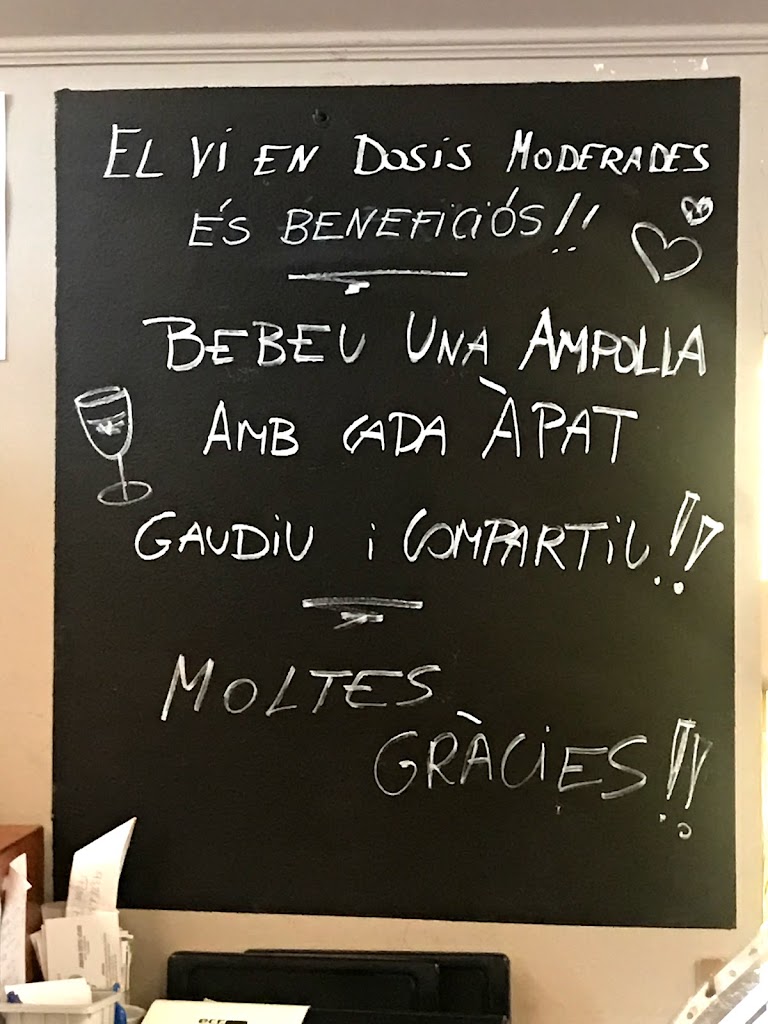 EL Vi EN DOSiS MODERADES
ÉS BENEFiCiÓS!!
BEBEU UNA AMPOLLA
AMB CADA ÀPAT
GAUDiU i COMPARTiU!!
MOLTES
GRÀCiES!!